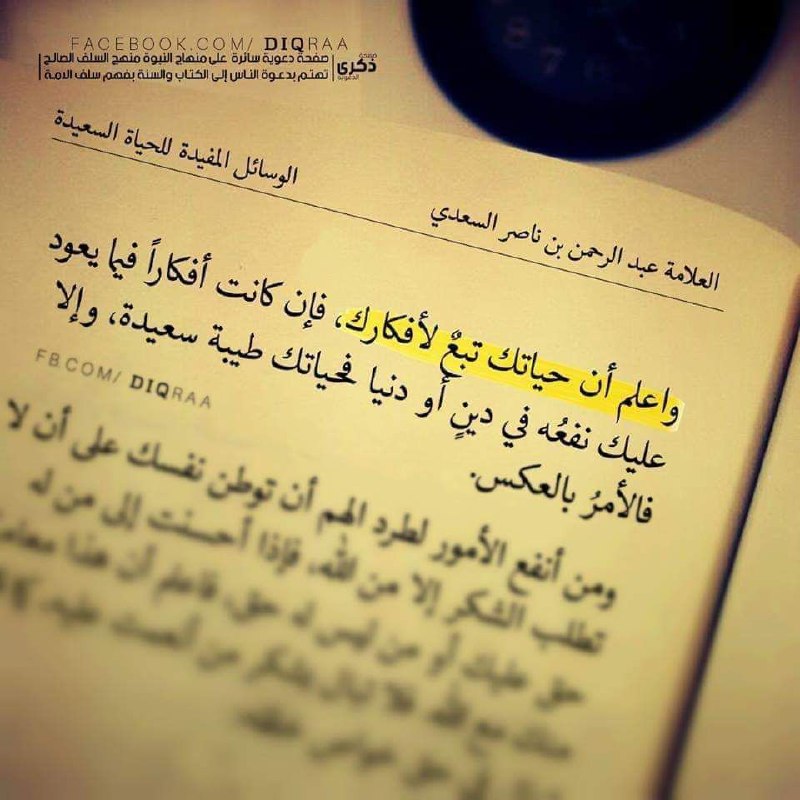 FACEBOOK.COM/ DIQRAA
صفحة دعوية سائرة على منهاج النبوة منهج السلف الصالح
تهتم بدعوة الناس إلى الكتاب والسنة بفهم سلف الامة
صفحة
ذكرى
الدعوية
الوسائل المفيدة للحياة السعيدة
العلامة عبد الرحمن بن ناصر السعدي
واعلم أن حياتك تبعٌ لأفكارك، فإن كانت أفكاراً فيما يعود
عليك نفعُه في دينٍ أو دنيا فحياتك طيبة سعيدة، وإلا
فالأمرُ بالعكس.
FB.COM/ DIQRAA
ومن أنفع الأمور لطرد الهم أن توطن نفسك على أن لا
تطلب الشكر إلا من الله، فإذا أحسنت إلى من له
حق عليك أو من ليس له حق، فاعلم أن هذا معاملة
منك مع الله فلا تبال بشكر من أنعمت عليه